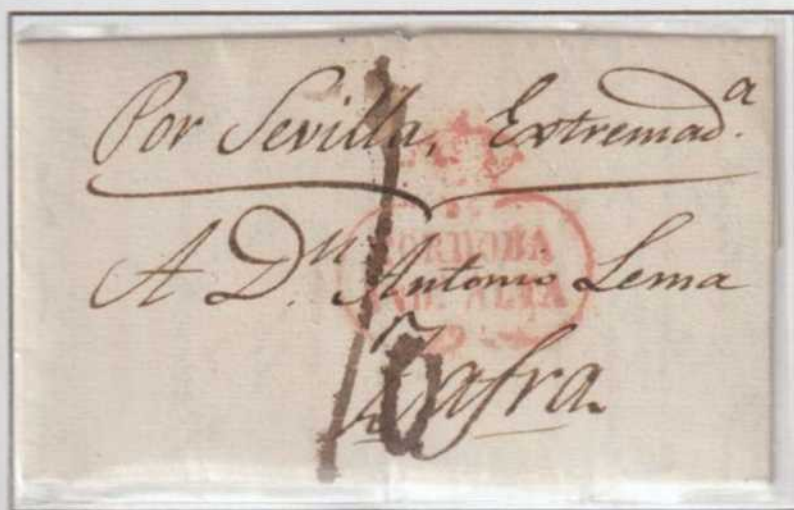 Por Sevilla, Extremad.ª
CORDOBA
AND. ALTA
A D.n Antonio Lema
Zafra.